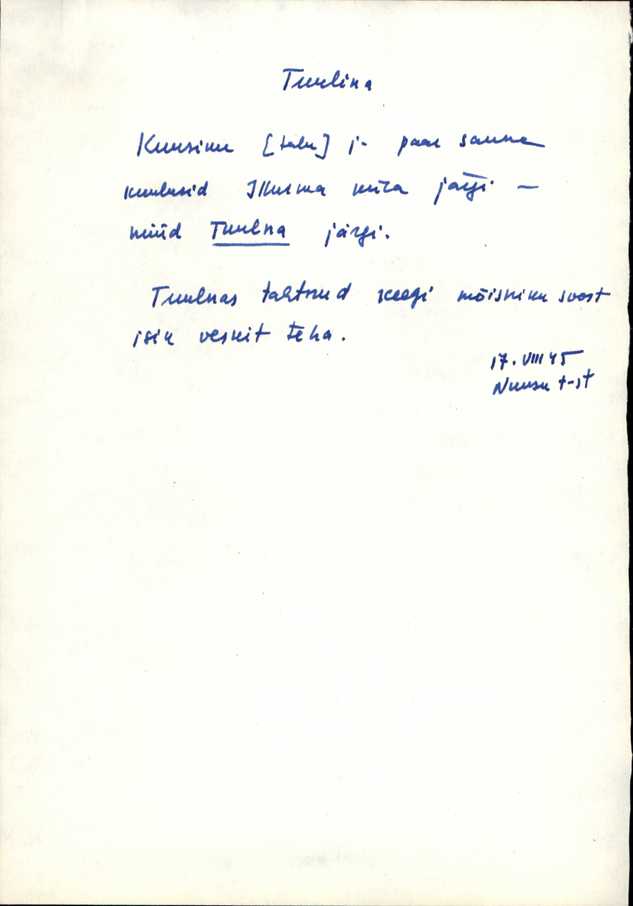 Tuulina
Kuusiku [talu] j- paar sauna
kuulusid Ilusma küla järgi –
nüüd Tuulna järgi.
Tuulnas tahtnud keegi mõisniku soost
isik veskit teha.
17. VIII 45
t-st